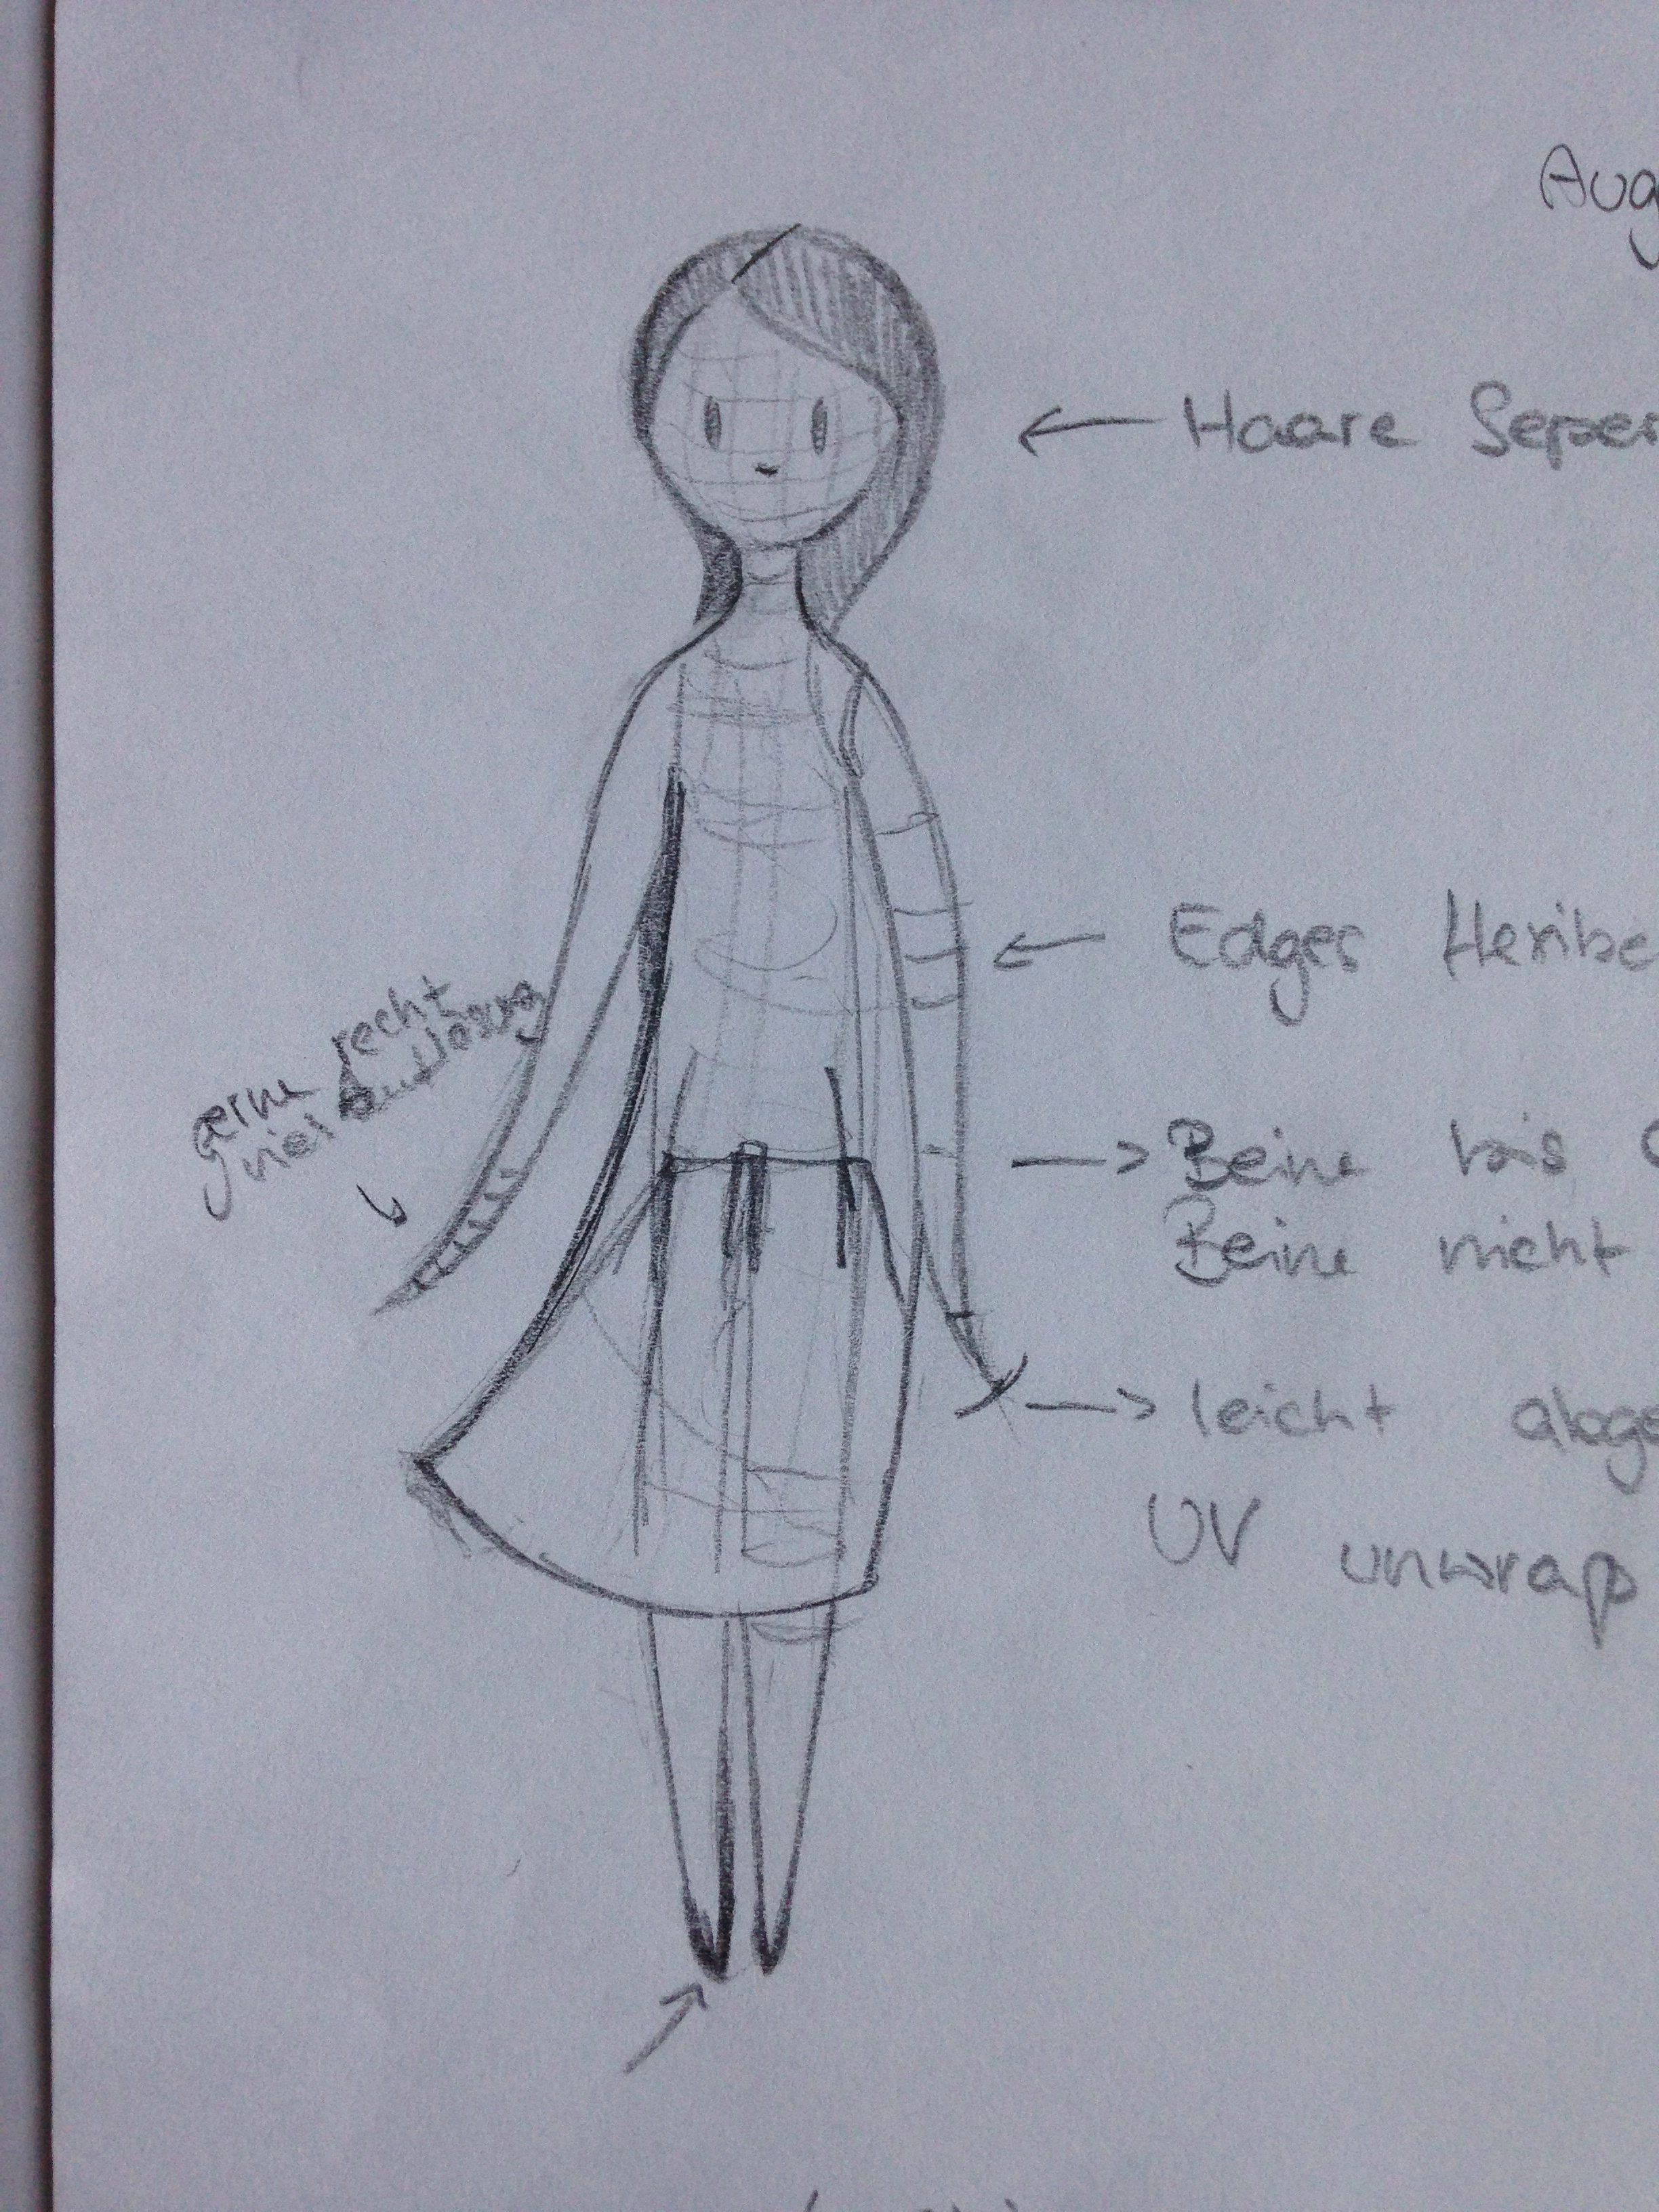 Aug
← Haare Seper
← Edges Heribe
gerne recht
viel Auflösung
→ Beine bis
Beine nicht
→ leicht abge
UV unwrap